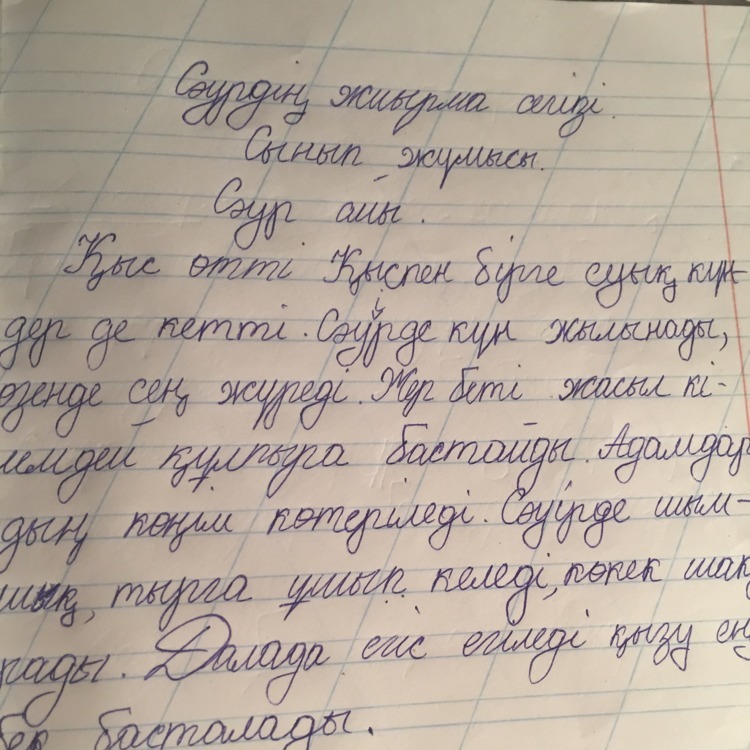 Сәурдің жиырма сегізі.
Сынып жұмысы.
Сәур айы.
Қыс өтті Қыспен бірге суық күн-
дер де кетті. Сәуірде күн жылынады,
өзенде сең жүреді. Жер беті жасыл кі-
лемдей құлпыра бастайды. Адамдар
дың көңім көтеріледі. Сәуірде шым-
шық, тырға ұшып келеді, көкек шақ
рады. Далада егіс егіледі қызу ең
бек басталады.